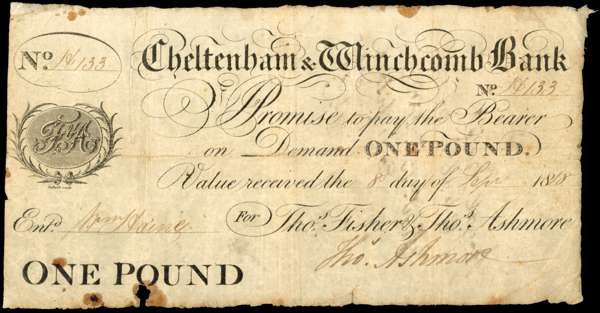 No. H 133
Cheltenham & Winchcomb Bank
No. H 133
I Promise to pay the Bearer
on Demand ONE POUND.
Value received the 8 day of Sep 1818
For Thos. Fisher & Thos. Ashmore
Entd. Wm Haines
Thos. Ashmore
ONE POUND